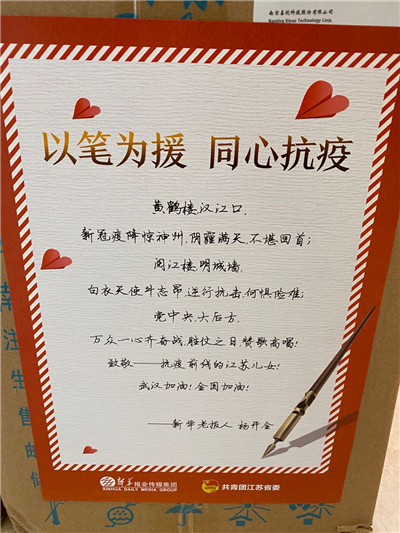 南京喜悦科技股份有限公司
Nanjing Xiyue Technology Corp.
以笔为援 同心抗疫
黄鹤楼,汉江口,
新冠疫降惊神州,阴霾满天,不堪回首;
阅江楼,明城墙,
白衣天使斗志昂,逆行抗击,何惧险难;
党中央,大后方,
万众一心齐奋战,胜仗之日,赞歌高唱!
致敬——抗疫前线的江苏儿女!
武汉加油!全国加油!
——新华老报人 杨开金
新华报业传媒集团
XINHUA DAILY MEDIA GROUP
共青团江苏省委
注
生
售
邮